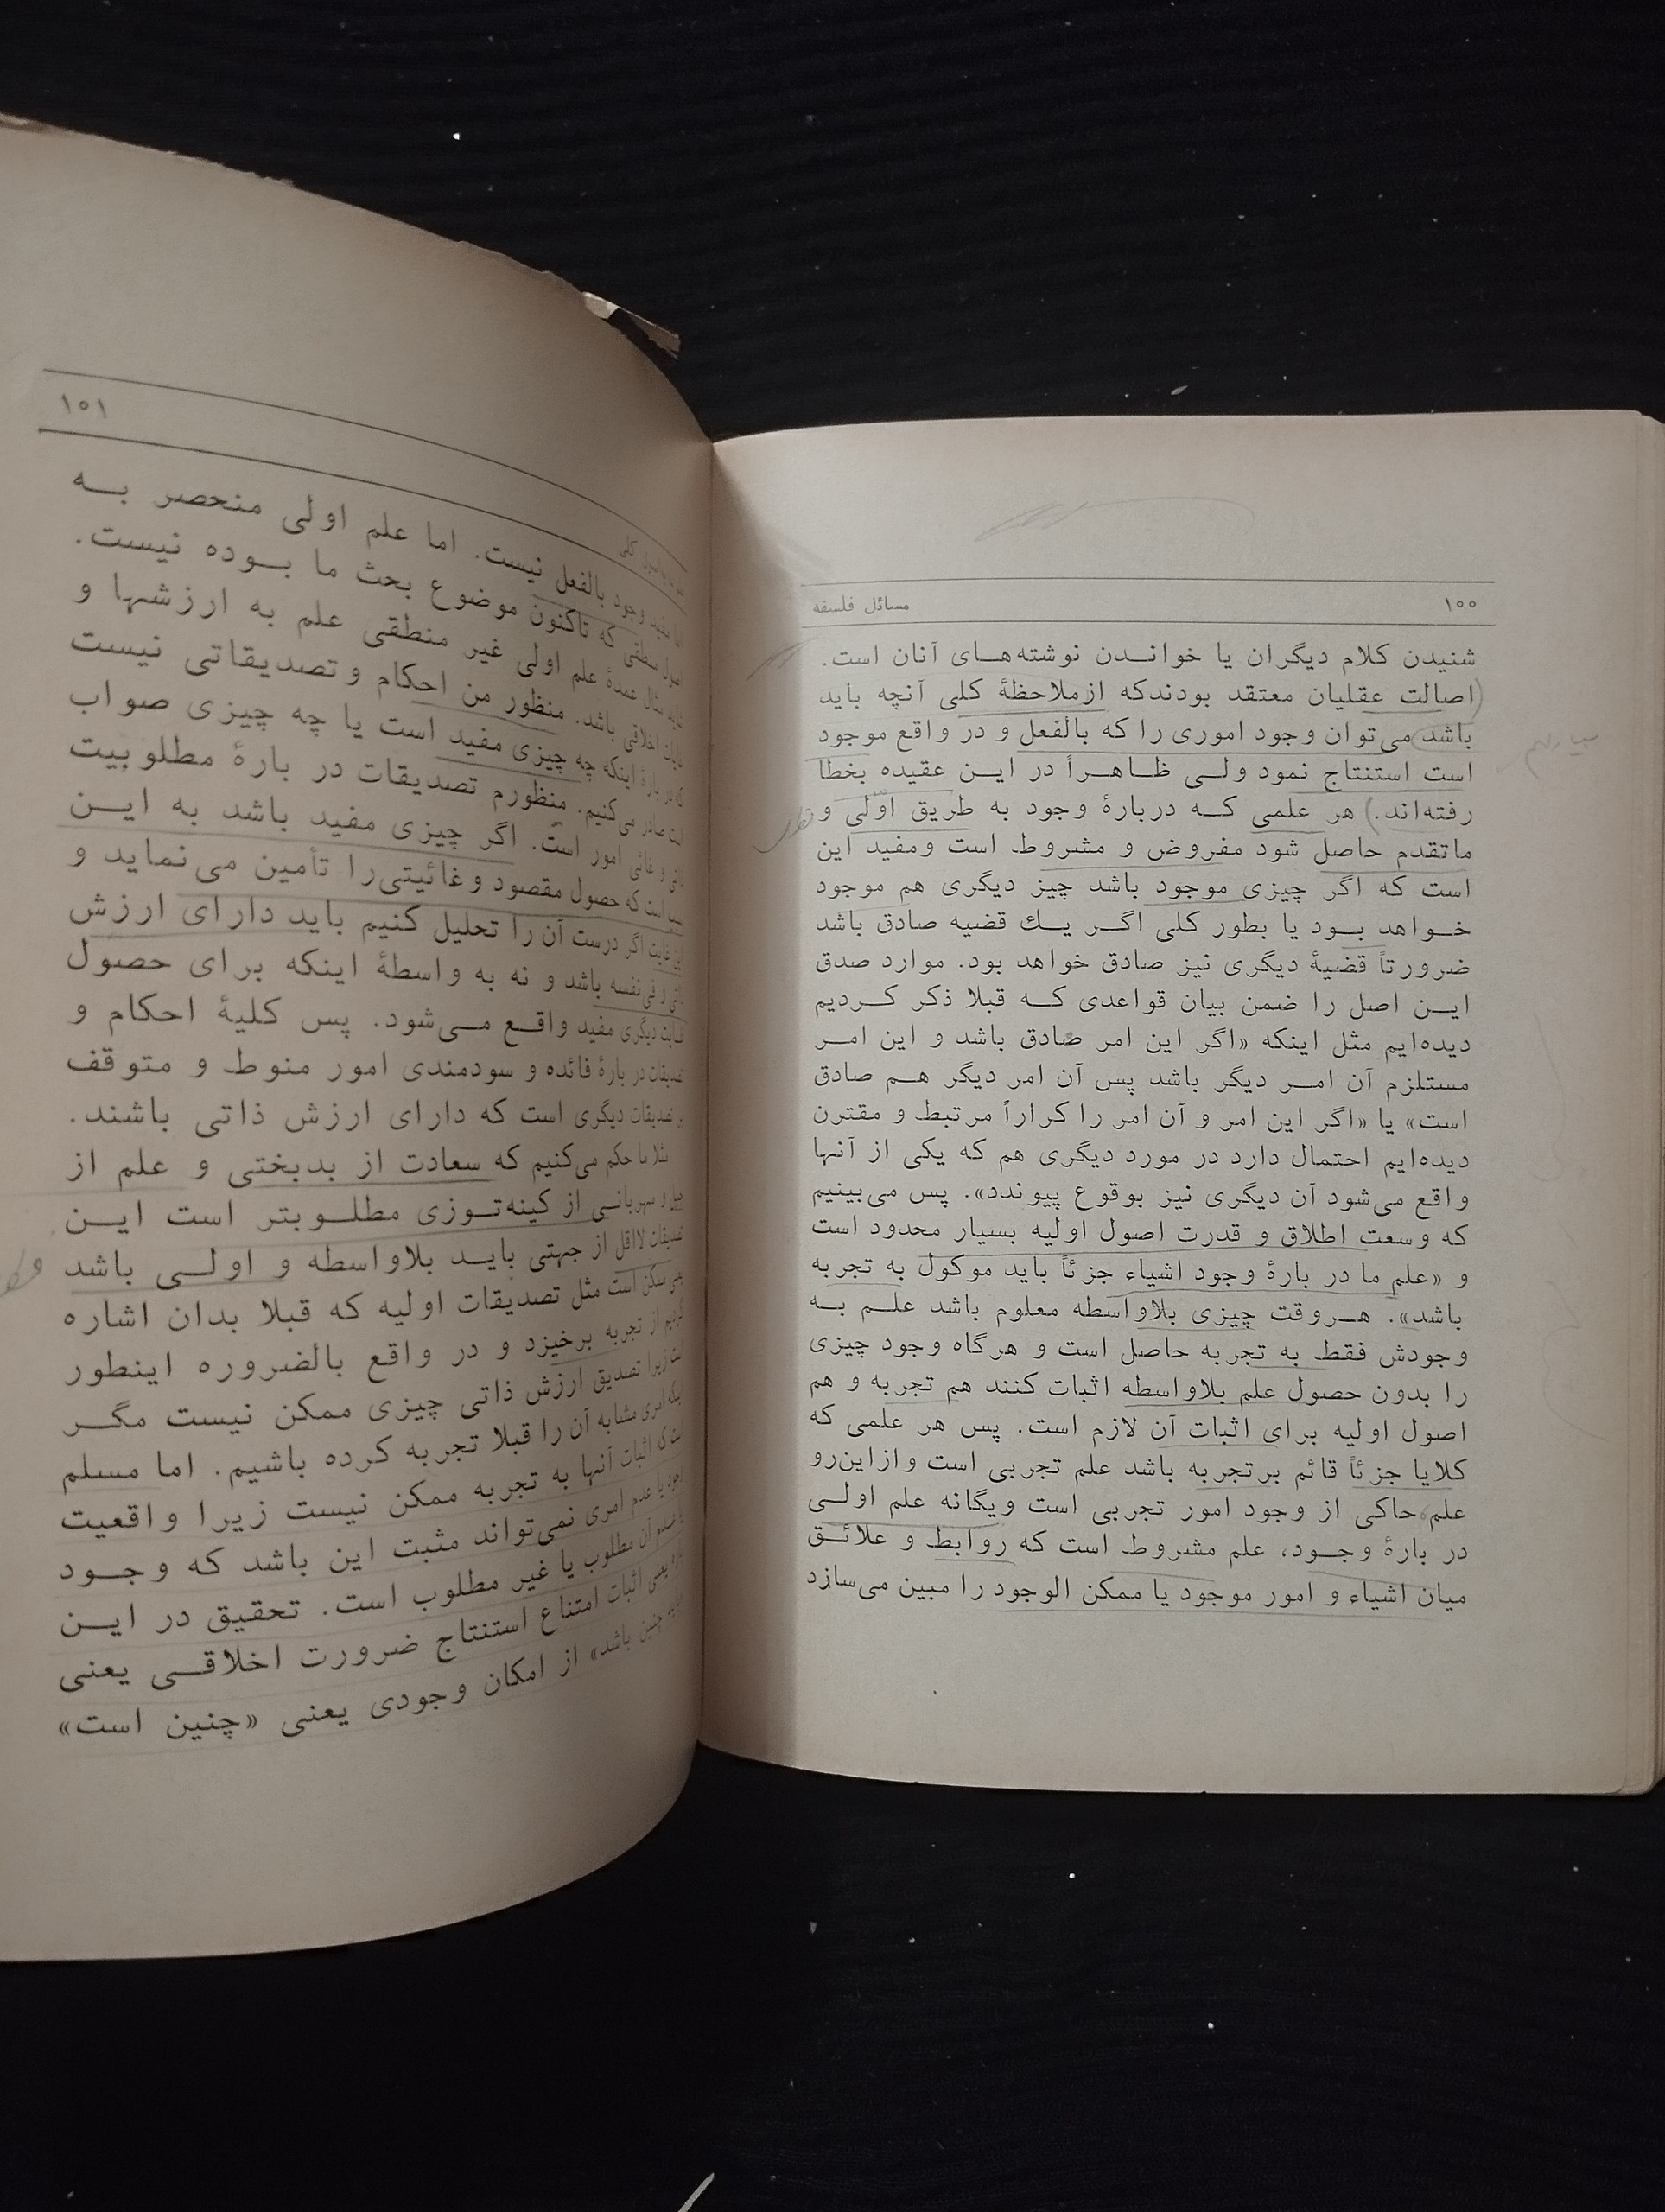 ۱۰۰
مسائل فلسفه
شنیدن کلام دیگران یا خواندن نوشته‌های آنان است.
(اصالت عقلیان معتقد بودندکه ازملاحظهٔ کلی آنچه باید
باشد می‌توان وجود اموری را که بالفعل و در واقع موجود
است استنتاج نمود ولی ظاهراً در این عقیده بخطا
رفته‌اند.) هر علمی که دربارهٔ وجود به طریق اوّلی و
ماتقدم حاصل شود مفروض و مشروط است ومفید این
است که اگر چیزی موجود باشد چیز دیگری هم موجود
خواهد بود یا بطور کلی اگر یك قضیه صادق باشد
ضرورتاً قضیهٔ دیگری نیز صادق خواهد بود. موارد صدق
این اصل را ضمن بیان قواعدی که قبلا ذکر کردیم
دیده‌ایم مثل اینکه «اگر این امر صادق باشد و این امر
مستلزم آن امر دیگر باشد پس آن امر دیگر هم صادق
است» یا «اگر این امر و آن امر را کراراً مرتبط و مقترن
دیده‌ایم احتمال دارد در مورد دیگری هم که یکی از آنها
واقع می‌شود آن دیگری نیز بوقوع پیوندد». پس می‌بینیم
که وسعت اطلاق و قدرت اصول اولیه بسیار محدود است
و «علم ما در بارهٔ وجود اشیاء جزئاً باید موکول به تجربه
باشد». هروقت چیزی بلاواسطه معلوم باشد علم به
وجودش فقط به تجربه حاصل است و هرگاه وجود چیزی
را بدون حصول علم بلاواسطه اثبات کنند هم تجربه و هم
اصول اولیه برای اثبات آن لازم است. پس هر علمی که
کلایا جزئاً قائم برتجربه باشد علم تجربی است وازاین‌رو
علم حاکی از وجود امور تجربی است ویگانه علم اولی
در بارهٔ وجود، علم مشروط است که روابط و علائق
میان اشیاء و امور موجود یا ممکن الوجود را مبین می‌سازد
۱۰۱
وجود بالفعل نیست. اما علم اولی منحصر به
که تاکنون موضوع بحث ما بوده نیست.
عمدهٔ علم اولی غیر منطقی علم به ارزشها و
اخلاقی باشد. منظور من احکام و تصدیقاتی نیست
که در بارهٔ اینکه چه چیزی مفید است یا چه چیزی صواب
است صادر می‌کنیم. منظورم تصدیقات در بارهٔ مطلوبیت
و غائی امور است. اگر چیزی مفید باشد به این
است که حصول مقصود و غائیتی‌را تأمین می‌نماید و
این غایت اگر درست آن را تحلیل کنیم باید دارای ارزش
و فی‌نفسه باشد و نه به واسطهٔ اینکه برای حصول
غایت دیگری مفید واقع می‌شود. پس کلیهٔ احکام و
تصدیقات در بارهٔ فائده و سودمندی امور منوط و متوقف
بر تصدیقات دیگری است که دارای ارزش ذاتی باشند.
مثلا ما حکم می‌کنیم که سعادت از بدبختی و علم از
و مهربانی از کینه‌توزی مطلوبتر است این
تصدیقات لااقل از جهتی باید بلاواسطه و اولی باشد
ممکن است مثل تصدیقات اولیه که قبلا بدان اشاره
کردیم از تجربه برخیزد و در واقع بالضروره اینطور
است زیرا تصدیق ارزش ذاتی چیزی ممکن نیست مگر
اینکه امری مشابه آن را قبلا تجربه کرده باشیم. اما مسلم
است که اثبات آنها به تجربه ممکن نیست زیرا واقعیت
وجود یا عدم امری نمی‌تواند مثبت این باشد که وجود
آن مطلوب یا غیر مطلوب است. تحقیق در این
یعنی اثبات امتناع استنتاج ضرورت اخلاقی یعنی
چنین باشد» از امکان وجودی یعنی «چنین است»